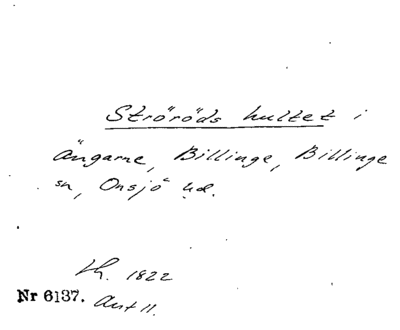 Ströröds hultet i
ängarne, Billinge, Billinge
sn, Onsjö hd.
Lh. 1822
Nr 6137. Akt 11.